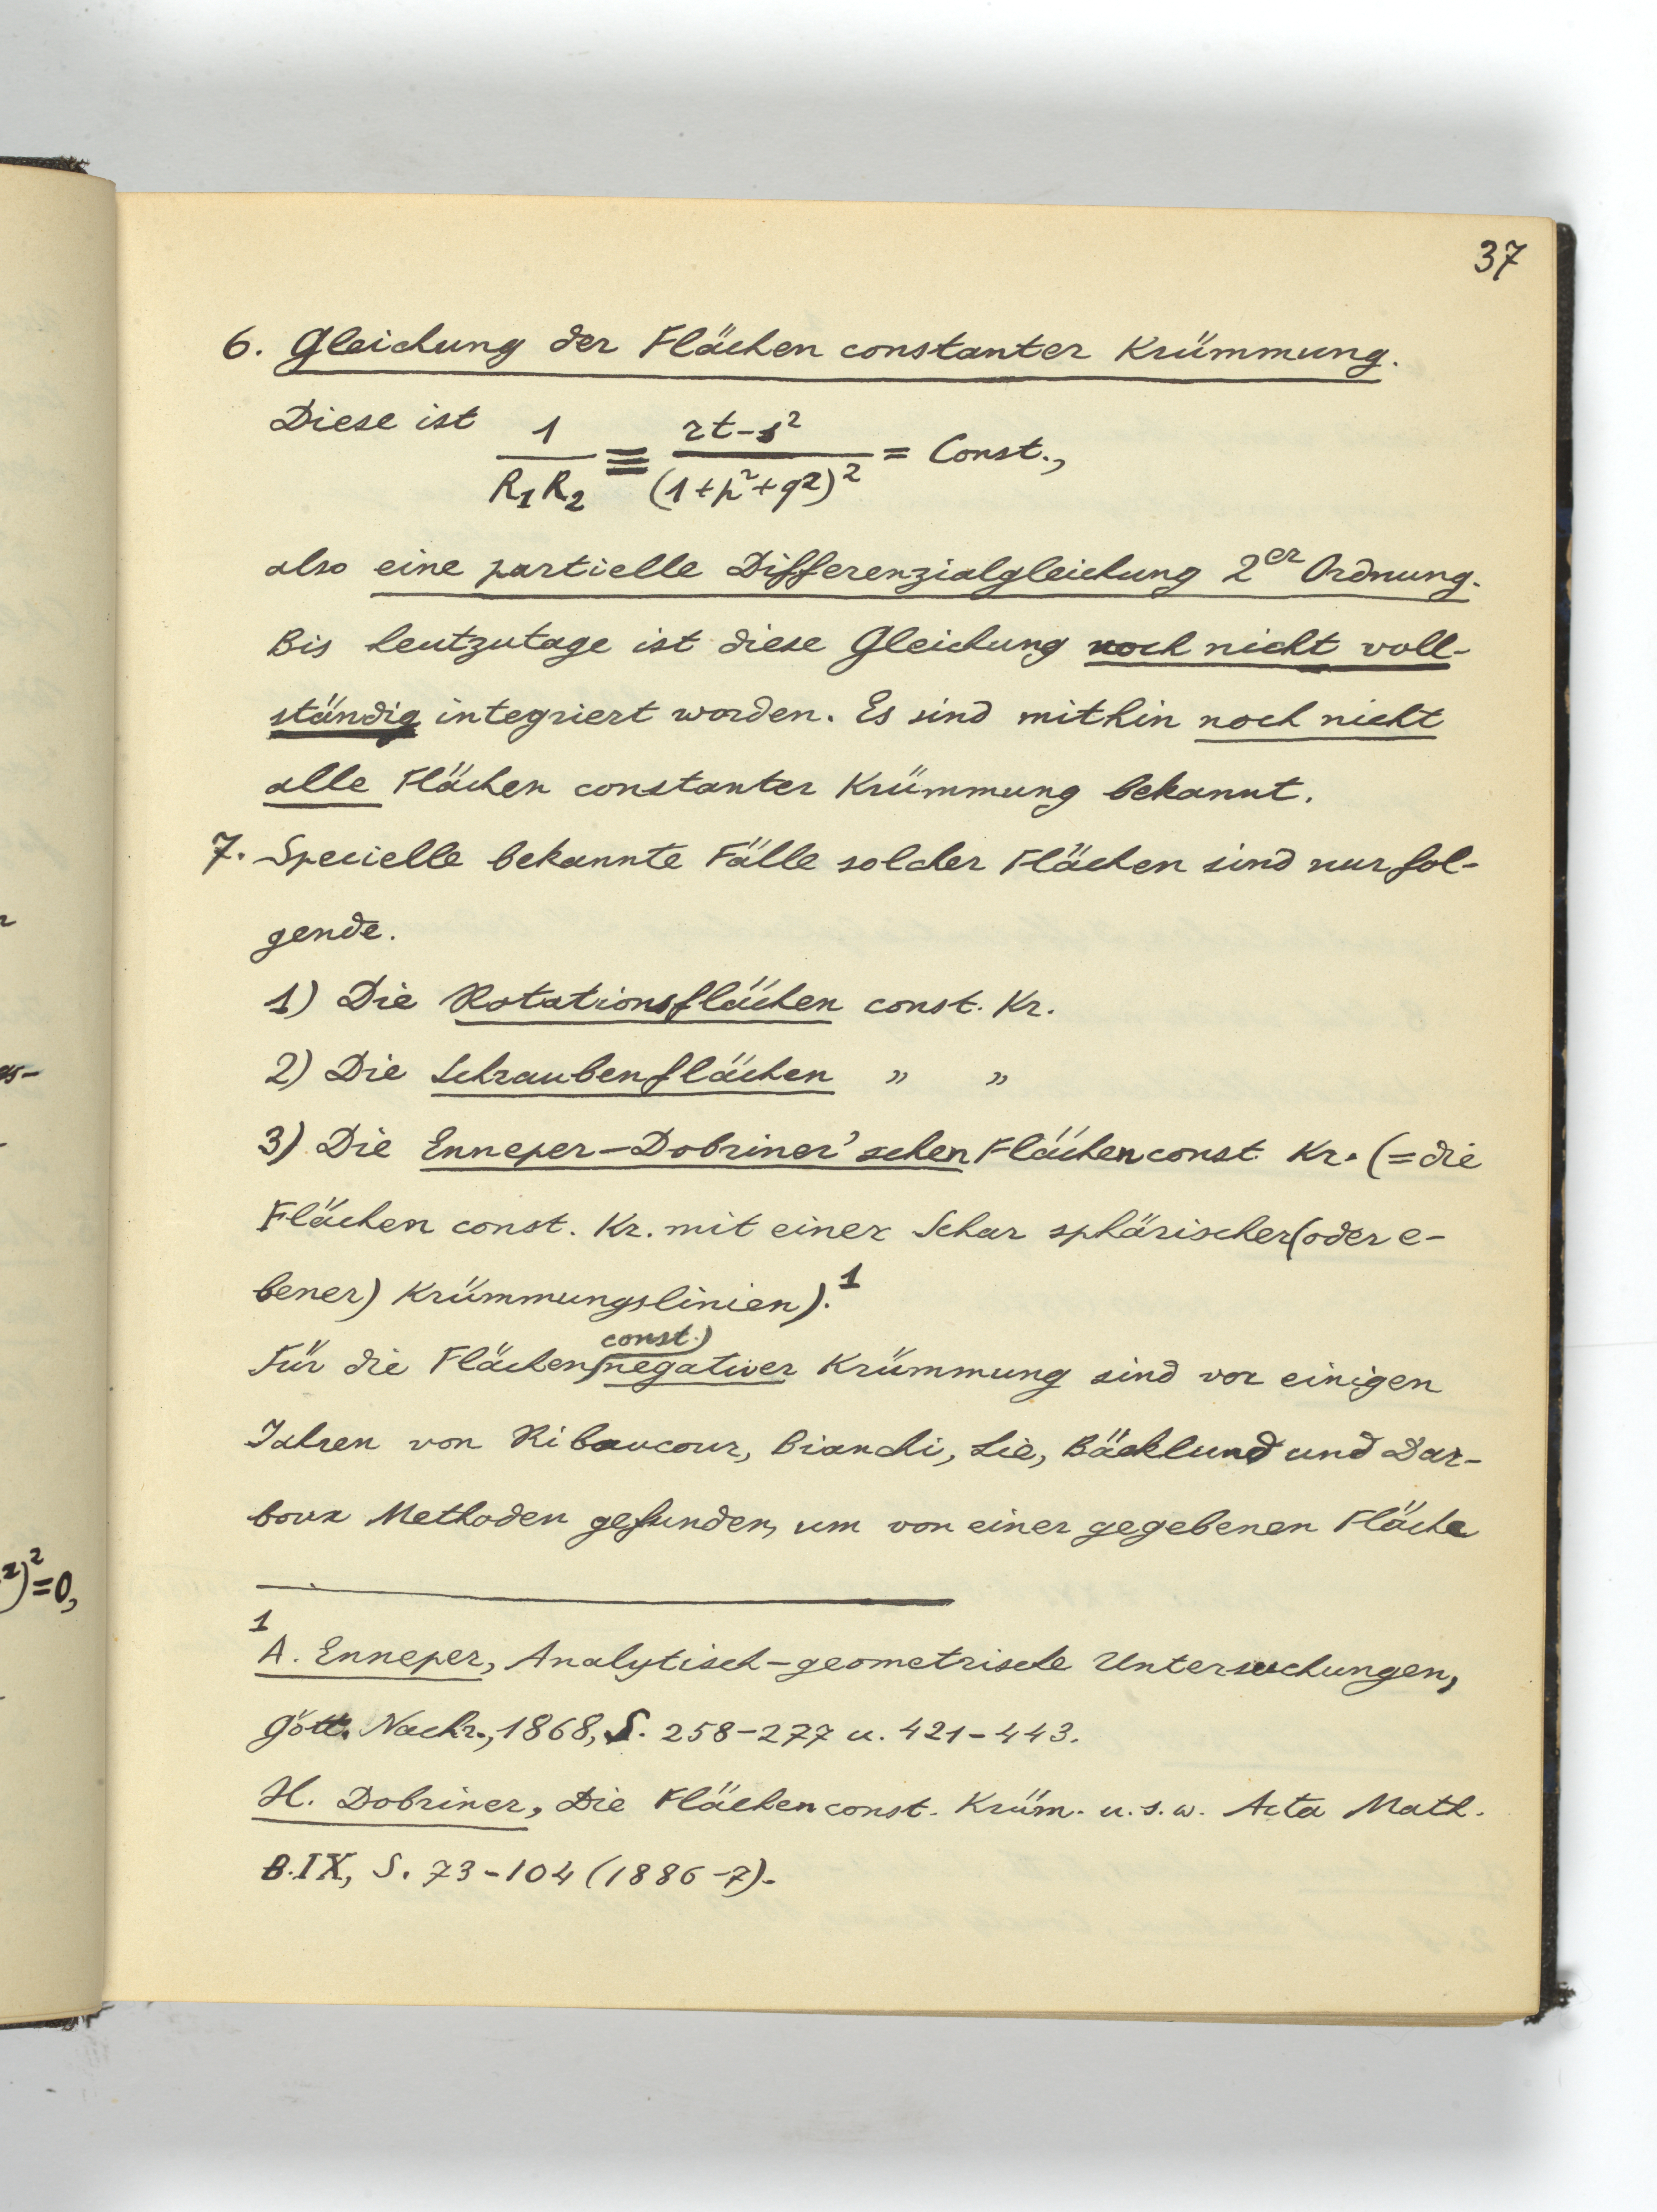 37
6. Gleichung der Flächen constanter Krümmung.
Diese ist 1/(R₁R₂) ≡ (rt-s²)/(1+p²+q²)² = Const.,
also eine partielle Differenzialgleichung 2er Ordnung.
Bis heutzutage ist diese Gleichung noch nicht voll-
ständig integriert worden. Es sind mithin noch nicht
alle Flächen constanter Krümmung bekannt.
7. Specielle bekannte Fälle solcher Flächen sind nur fol-
gende.
1) Die Rotationsflächen const. Kr.
2) Die Schraubenflächen „ „
3) Die Enneper-Dobriner'schen Flächen const Kr. (=die
Flächen const. Kr. mit einer Schar sphärischer (oder e-
bener) Krümmungslinien).¹
const.)
Für die Flächen negativer Krümmung sind vor einigen
Jahren von Ribaucour, Bianchi, Lie, Bäcklund und Dar-
boux Methoden gefunden, um von einer gegebenen Fläche
¹
A. Enneper, Analytisch-geometrische Untersuchungen,
Gött. Nachr., 1868, S. 258-277 u. 421-443.
H. Dobriner, Die Flächen const. Krüm. u.s.w. Acta Math.
B.IX, S. 73-104 (1886-7).
²)²=0,